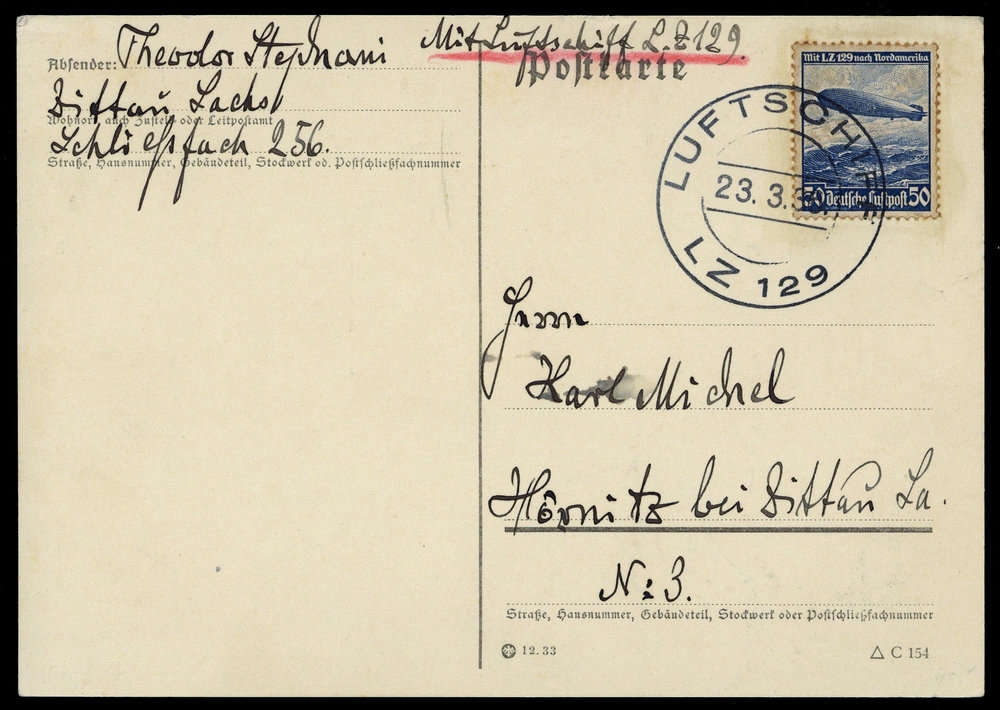 Mit Luftschiff L.Z 129.
Postkarte
Absender: Theodor Stephani
Zittau Sachs
Wohnort, auch Zustell- oder Leitpostamt
Schließfach 256.
Straße, Hausnummer, Gebäudeteil, Stockwerk od. Postschließfachnummer
Mit LZ 129 nach Nordamerika
50 Deutsche Luftpost 50
LUFTSCHIFF
23. 3. 36.
LZ 129
Herrn
Karl Michel
Hörnitz bei Zittau Sa.
N: 3.
Straße, Hausnummer, Gebäudeteil, Stockwerk oder Postschließfachnummer
12. 33
△ C 154